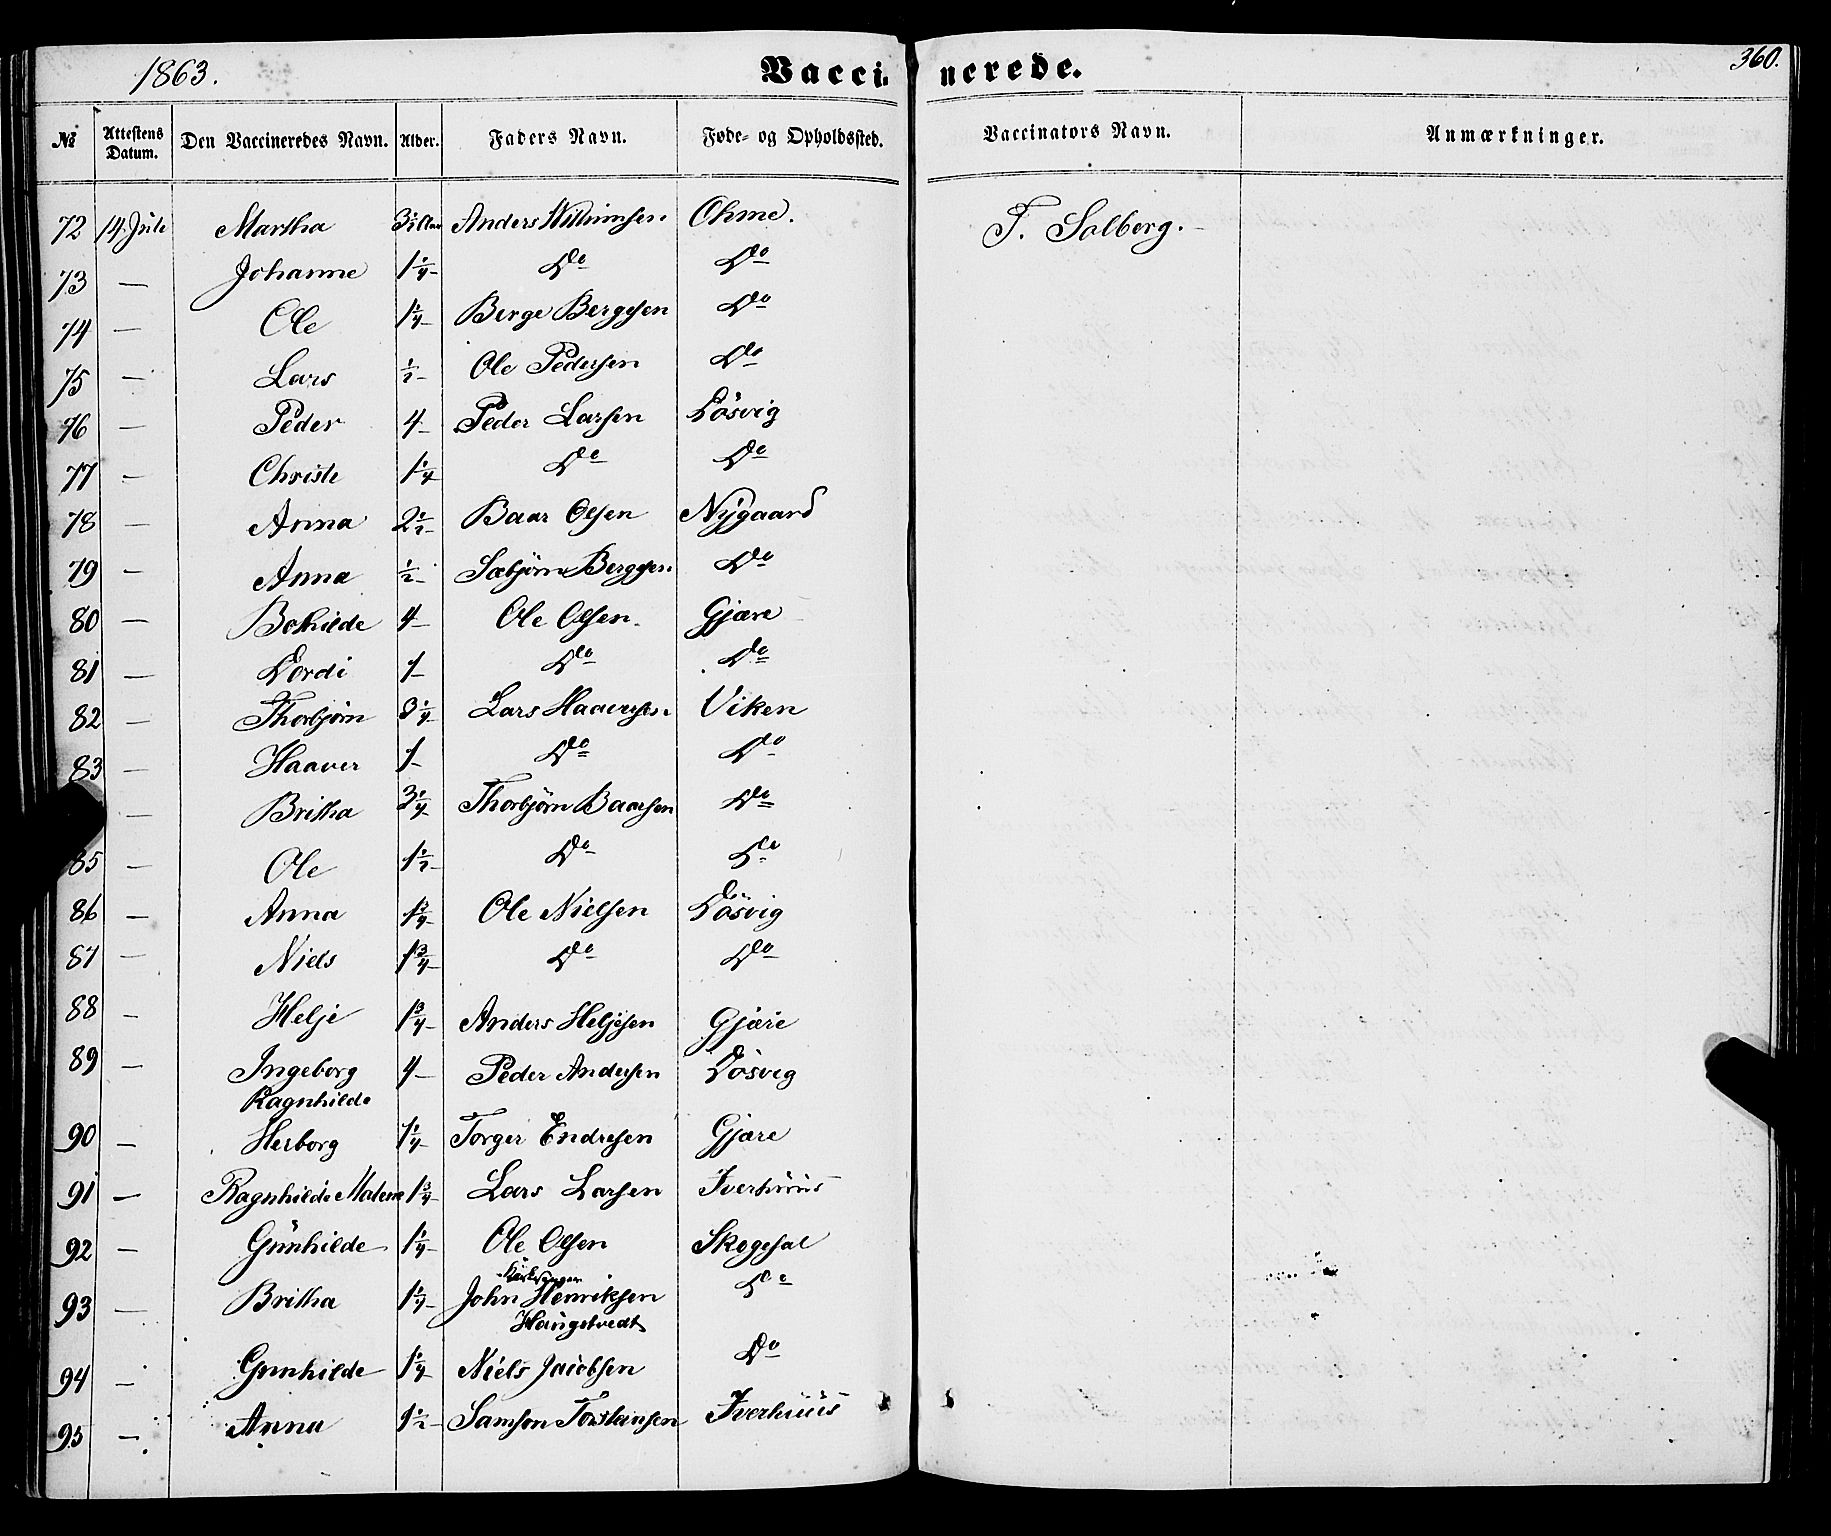 1863. Vaccinerede. 360.
№ Attestens Datum. Den Vaccineredes Navn. Alder. Faders Navn. Føde- og Opholdssted. Vaccinators Navn. Anmærkninger.
72 14 Jule Martha 3½ Aar Anders Ohme. T. Solberg.
73 — Johanne 1¼ Do Do
74 — Ole 1¼ Berge Bergesen Do
75 — Lars ½ Ole Pedersen Do
76 — Peder 4 Peder Larsen Dösvig
77 — Christi 1¼ Do Do
78 — Anna 2½ Baar Olsen Nygaard
79 — Anna ½ Sæbjörn Bergesen Do
80 — Bothilde 4 Ole Olsen. Gjære
81 — Dordi 1 Do Do
82 — Thorbjörn 3¼ Lars Haaversen Viken
83 — Haaver 1 Do Do
— Britha 3¼ Thorbjörn Baarsen Do
85 — Ole 1½ Do Do
86 — Anna Ole Nielsen Dösvig
87 — Niels 1¾ Do Do
88 — Helje 1¾ Anders Heljesen Gjære
89 — Ingeborg 4 Peder Andersen Dösvig
Ragnhilde
90 — Herborg 1¼ Torger Endresen Gjære
91 — Ragnhilde Malene 1¾ Lars Larsen Iverhuus
92 — Günhilde 1¼ Ole Olsen Skogesal
Kirkesanger
93 — Britha 1¼ John Henriksen Do
Haugstvedt
94 — Gunhilde 1¼ Niels Jacobsen Do
95 — Anna 1½ Samson Torsteinsen Iverhuus